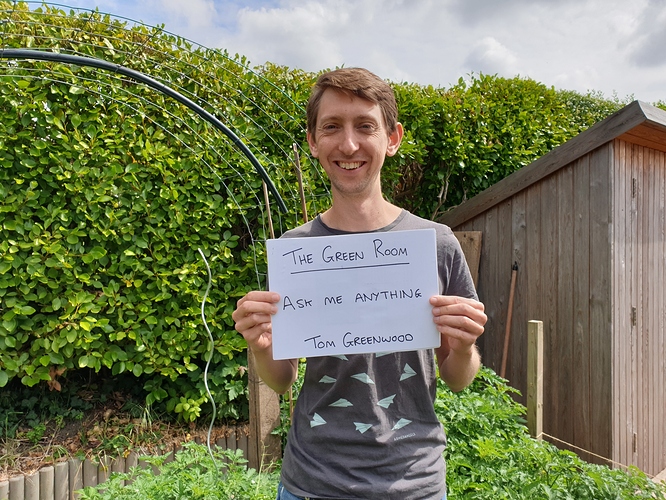 THE GREEN ROOM
ASK ME ANYTHING
TOM GREENWOOD